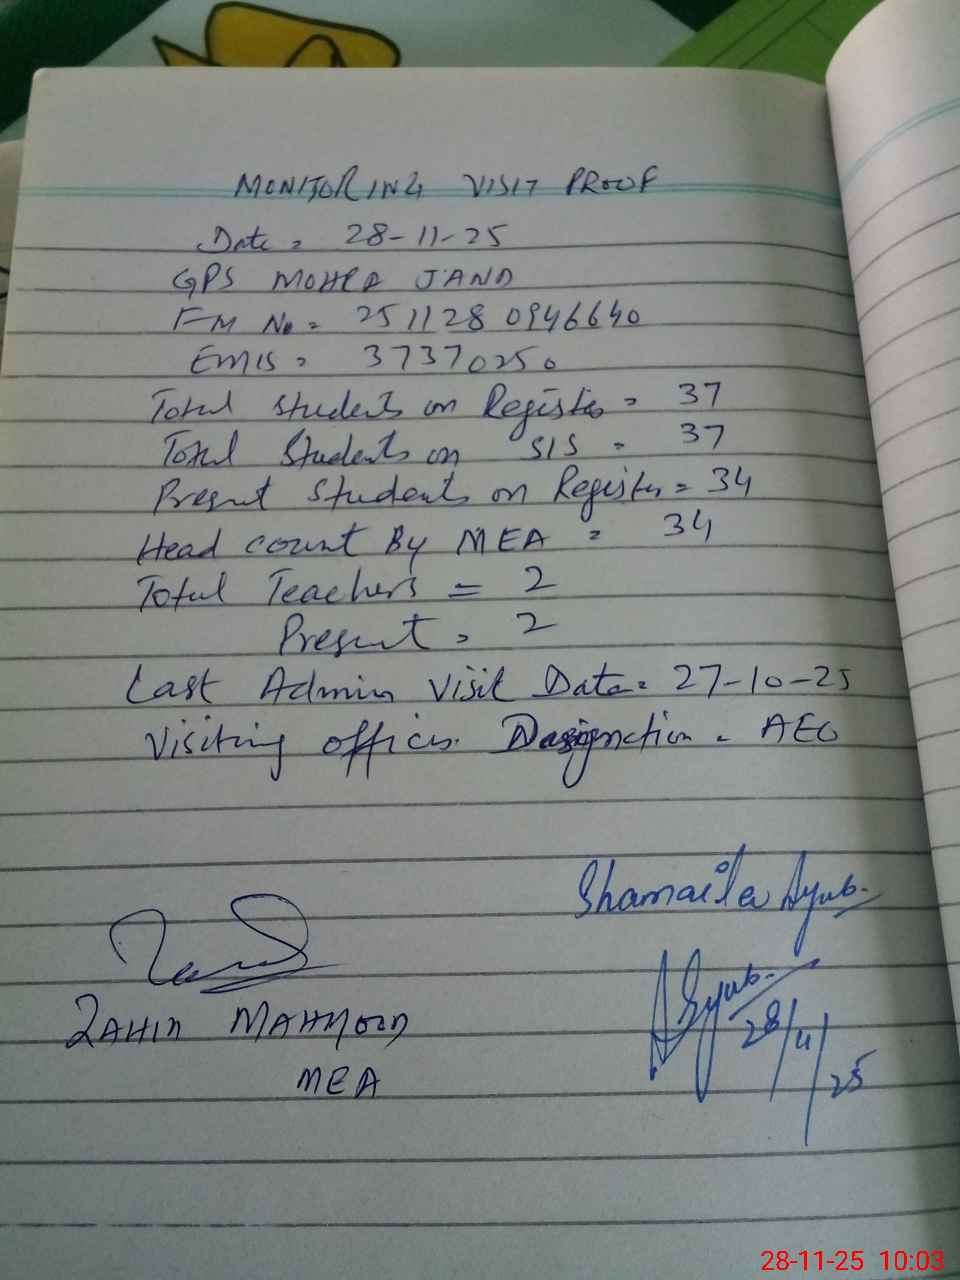 MONITORING VISIT PROOF
Date = 28-11-25
GPS MOHRA JAND
FM No = 251128 0946640
EMIS = 37370250
Total students on Register = 37
Total Students on SIS = 37
Present Students on Register = 34
Head count By MEA = 34
Total Teachers = 2
Present = 2
Last Admin Visit Date = 27-10-25
Visiting officer Designation = AEO
Shamaila Ayub.
ZAHID MAHMOOD
MEA
Ayub.
28/11/25
28-11-25 10:03